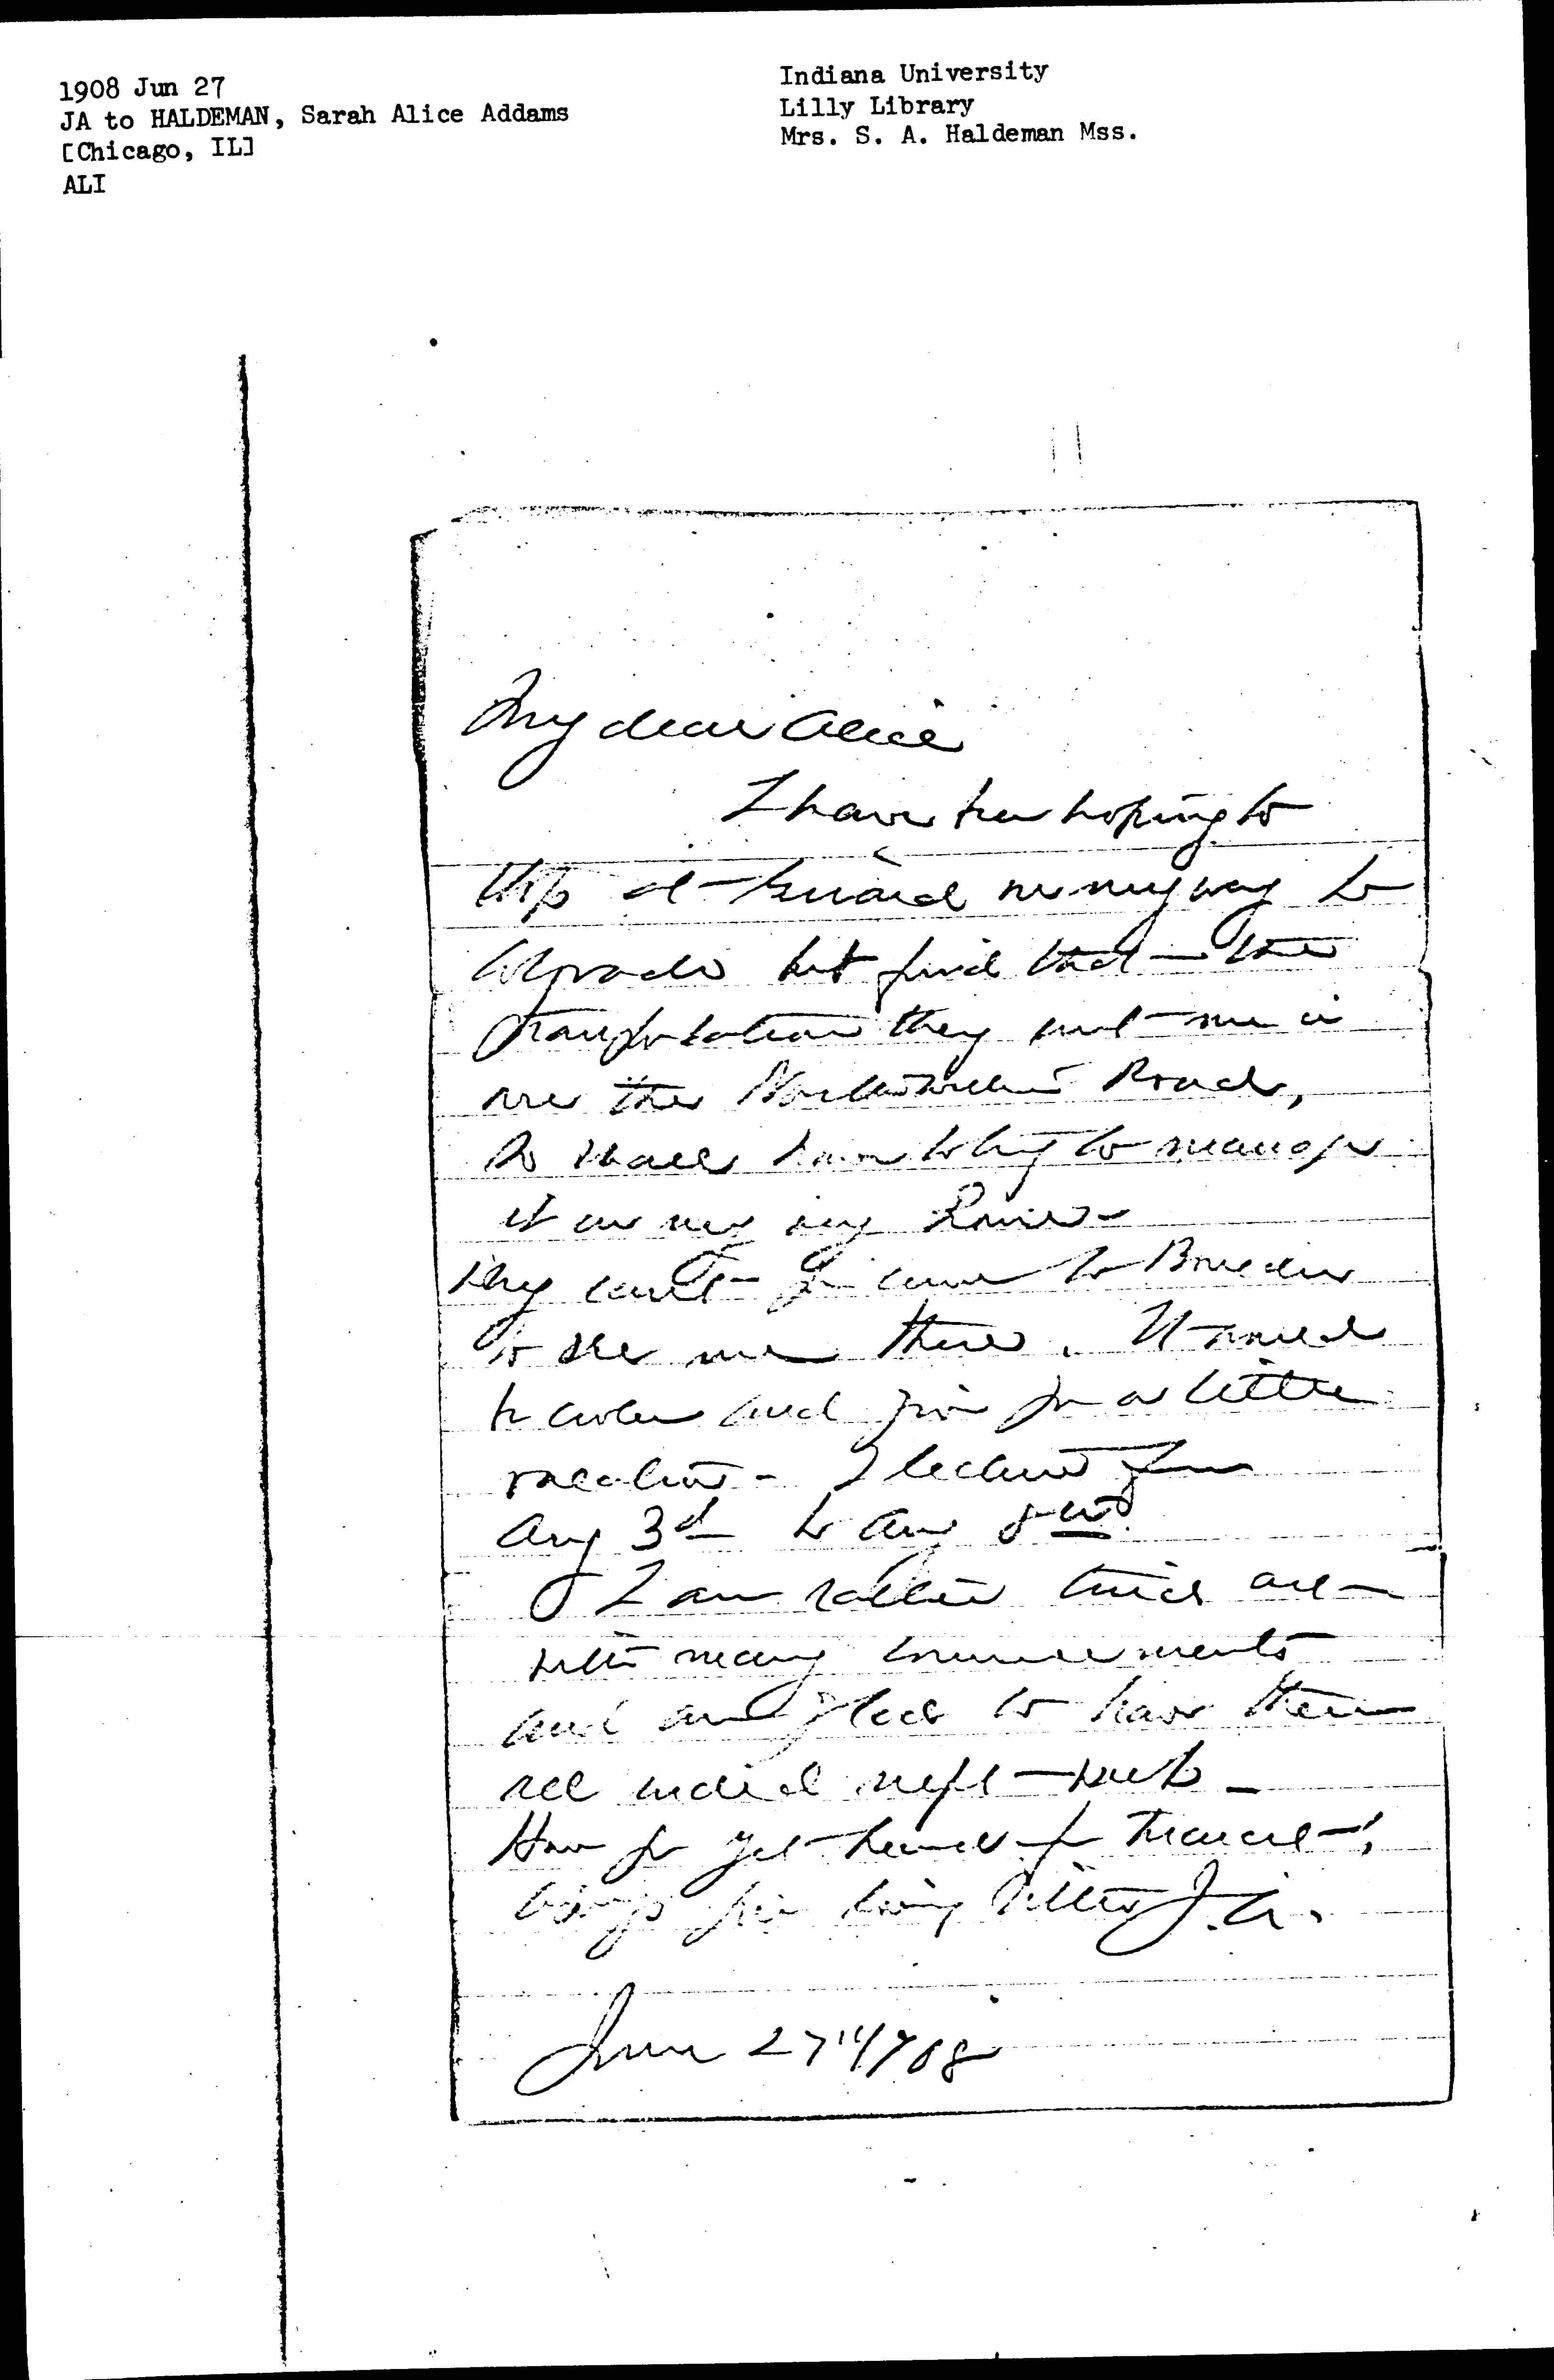 1908 Jun 27
JA to HALDEMAN, Sarah Alice Addams
[Chicago, IL]
ALI
Indiana University
Lilly Library
Mrs. S. A. Haldeman Mss.
My dear Alice
I have been hoping to
stop at Girard on my way to
Colorado but find that the
transportation they sent me is
over the Northwestern Road,
so shall have to try to manage
it on my way home -
Why can't you come to Boulder
to see me there. It would
be cooler and give you a little
vacation - I lecture from
Aug 3d to Aug 8th.
I am rather tired out
with many commencements
and am glad to have them
all ended next week -
Have you yet heard of
always your loving sister J.A.
June 27"/08